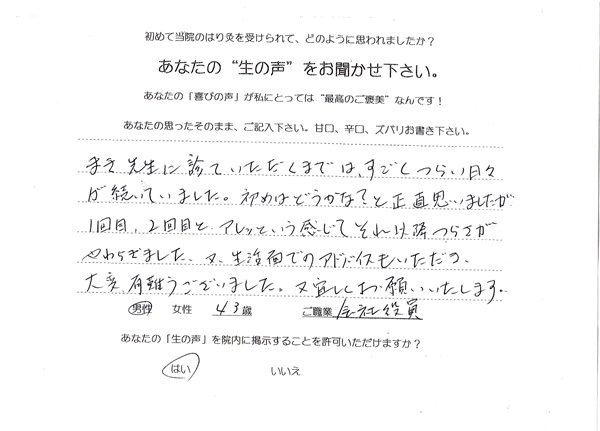 初めて当院のはり灸を受けられて、どのように思われましたか？
あなたの“生の声”をお聞かせ下さい。
あなたの「喜びの声」が私にとっては“最高のご褒美”なんです！
あなたの思ったそのまま、ご記入下さい。甘口、辛口、ズバリお書き下さい。
まき先生に診ていただくまでは、すごくつらい日々
が続いていました。初めはどうかな？と正直思いましたが
1回目、2回目と、アレッという感じで それ以降つらさが
やわらぎました、又、生活面でのアドバイスもいただき、
大変、有難うございました。又宜しくお願いいたします。
男性 女性 43歳 ご職業 会社役員
あなたの「生の声」を院内に掲示することを許可いただけますか？
はい いいえ